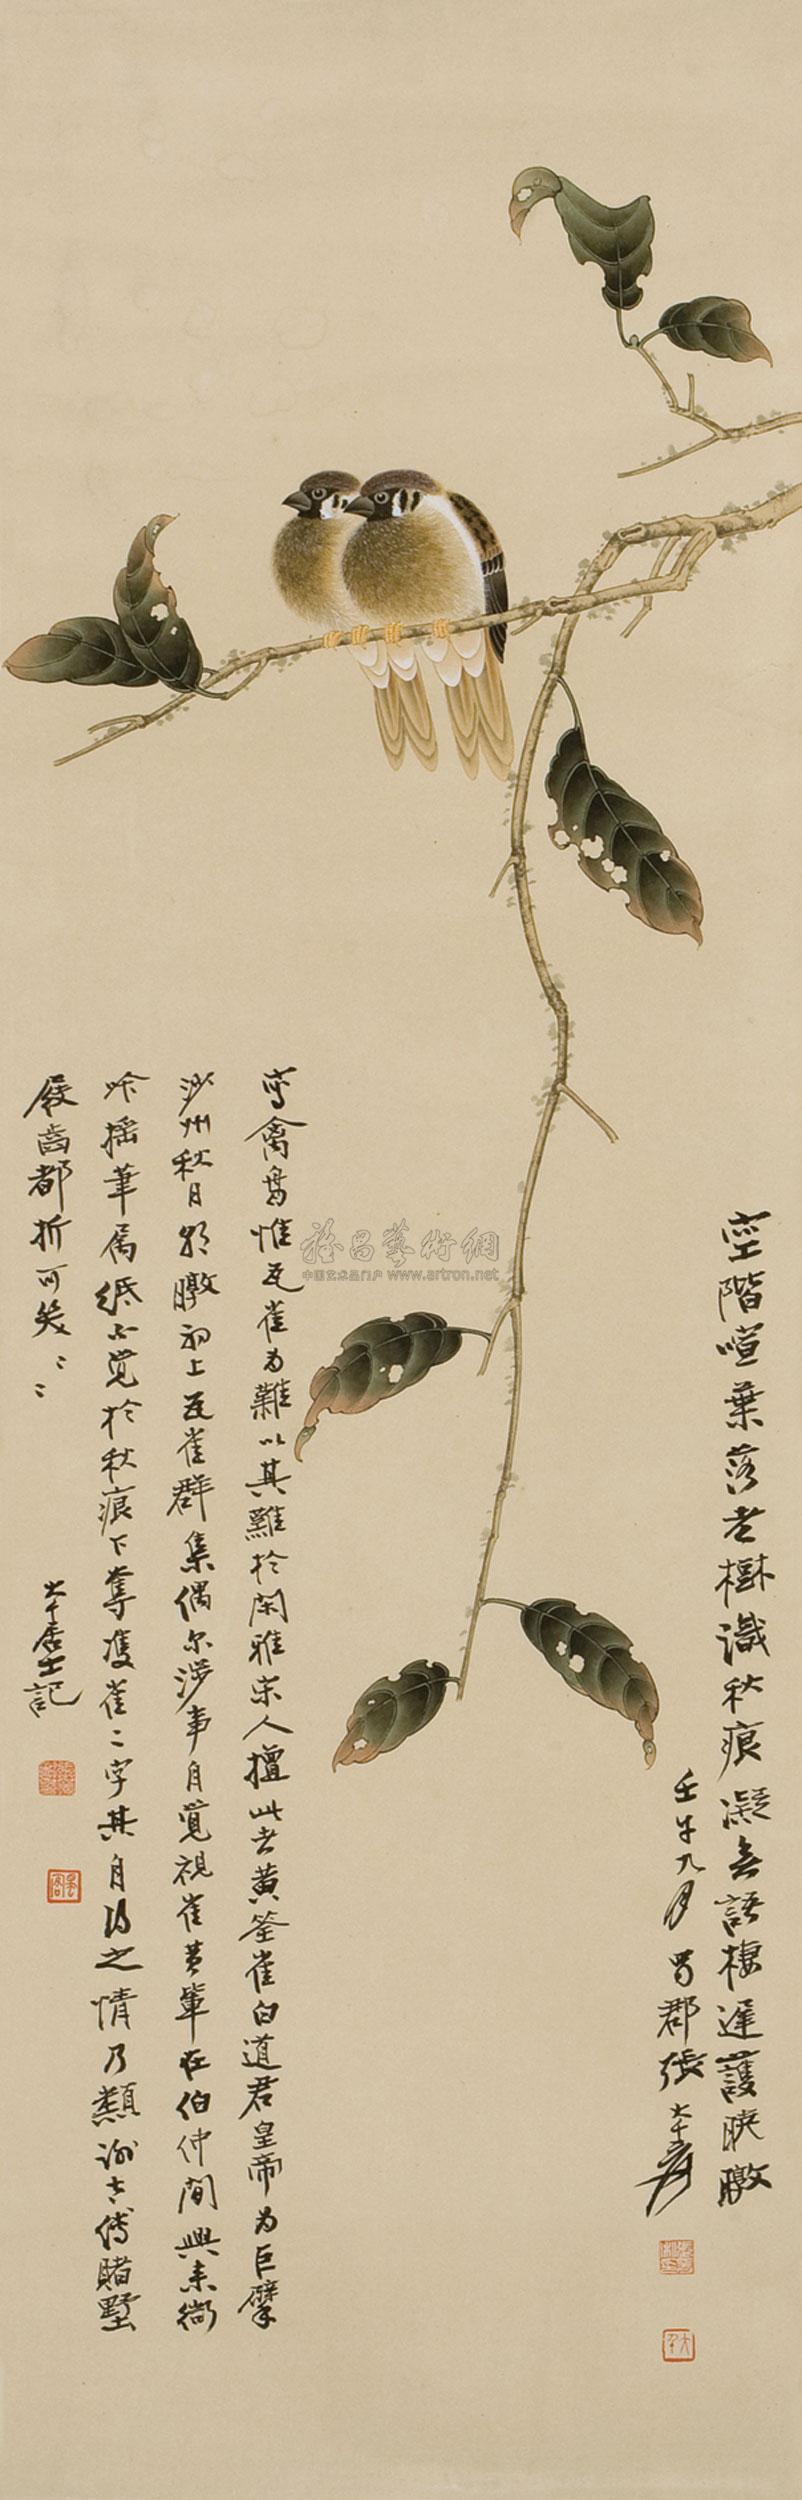 空階喧葉落老樹識秋痕凝立無語棲遲護曉暾
壬午九月蜀郡張大千爰
寫禽鳥惟瓦雀為難以其難於閑雅宋人擅此者黃筌崔白道君皇帝為巨擘
沙州秋日朝暾初上瓦雀群集偶爾涉事自覺視崔黃輩在伯仲間興來銜
吟搖筆屬紙不覺於秋痕下奪護雀二字其自得之情乃類謝太傅賭墅
屐齒都折可笑〻〻
大千居士記
雅昌藝術網
中国艺术品门户 www.artron.net